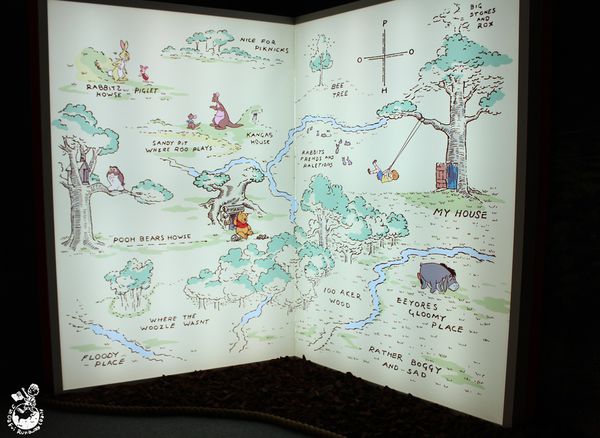 NICE FOR
PIKNICKS
RABBITZ
HOWSE
PIGLET
SANDY PIT
WHERE ROO PLAYS
KANGAS
HOUSE
POOH BEARS HOWSE
WHERE THE
WOOZLE WASNT
FLOODY
PLACE
BIG
STONES
AND
ROX
P
O
O
H
BEE
TREE
RABBITS
FRENDS AND
RALETIONS
MY HOUSE
100 AKER
WOOD
EEYORES
GLOOMY
PLACE
RATHER BOGGY
AND SAD